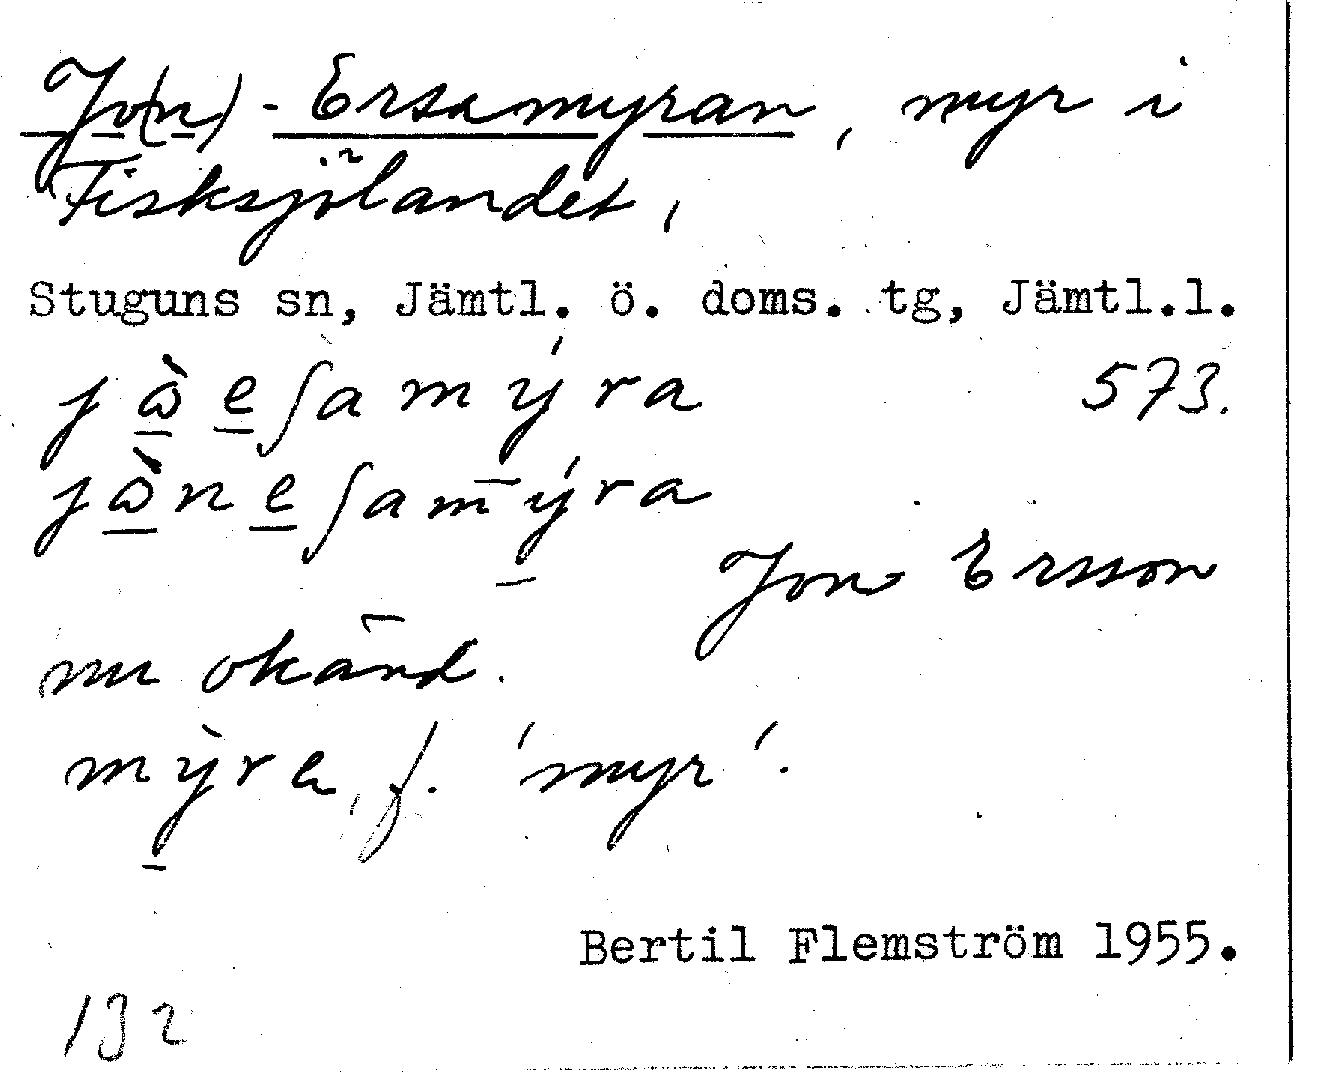 Jo(n)-Ersamyran, myr i
Fisksjölandet,
Stuguns sn, Jämtl. ö. doms. tg, Jämtl.l.
573.
Jon Ersson
nu okänd.
f. 'myr'.
Bertil Flemström 1955.
132